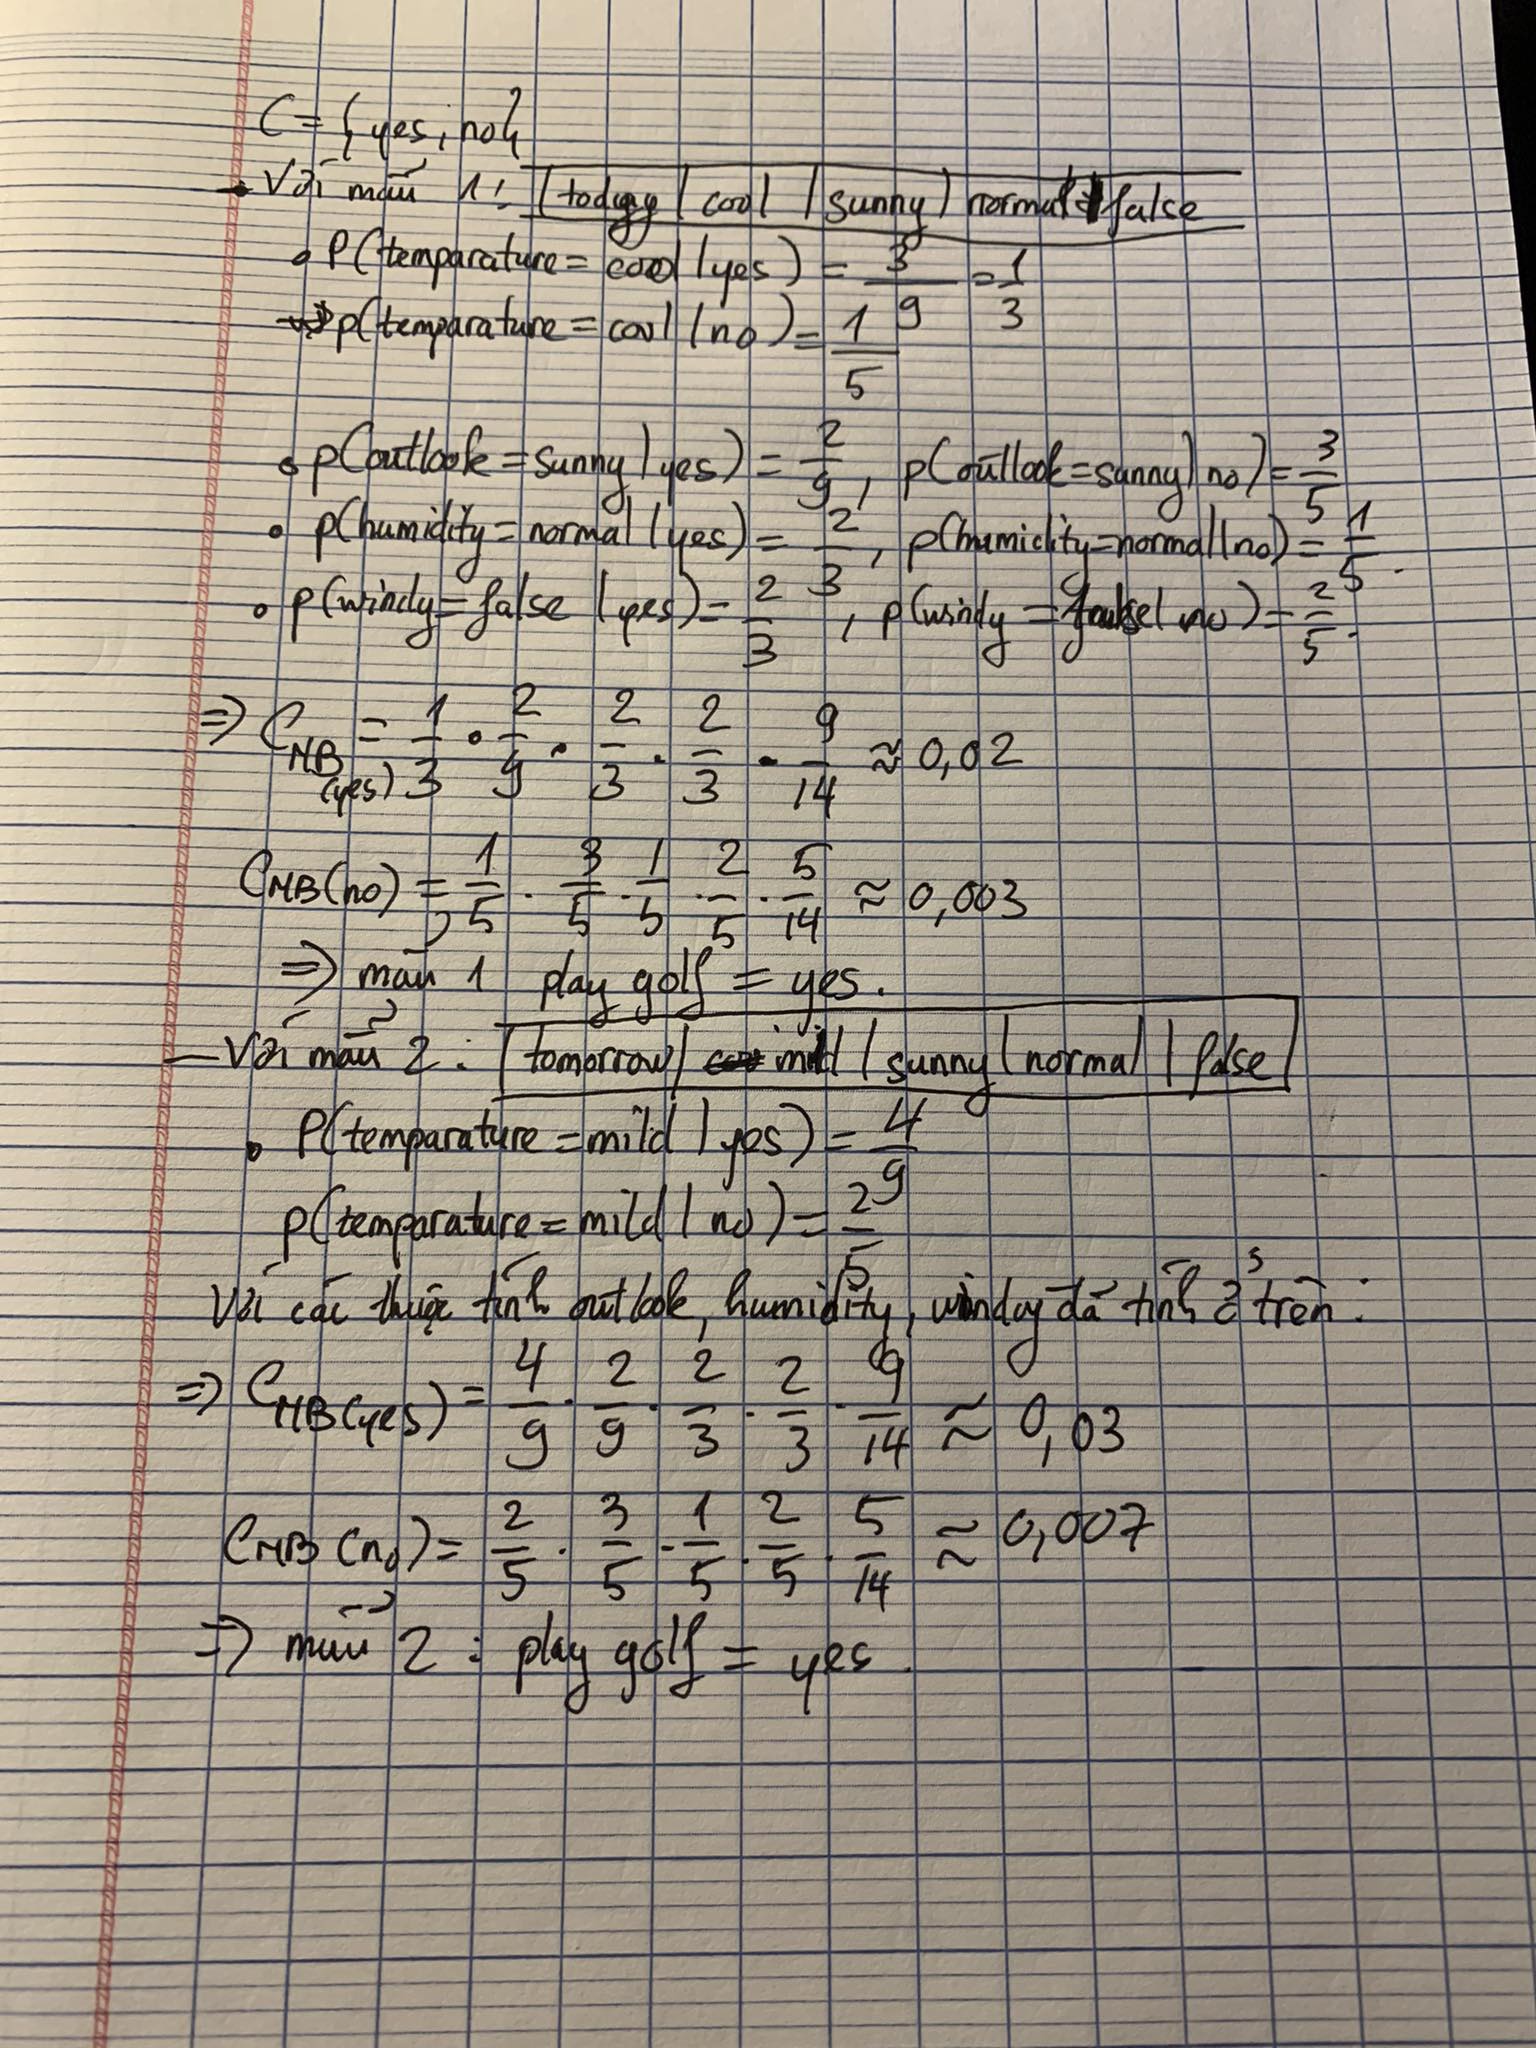 C = {yes, no}
Với mẫu 1: | today | cool | sunny | normal | false
P(temparature = cool | yes) = 3/9 = 1/3
P(temparature = cool | no) = 1/5
p(outlook = sunny | yes) = 2/9, p(outlook = sunny | no) = 3/5
p(humidity = normal | yes) = 2/3, p(humidity = normal | no) = 1/5.
p(windy = false | yes) = 2/3, p(windy = false | no) = 2/5.
=> C_NB (yes) = 1/3 . 2/9 . 2/3 . 2/3 . 9/14 ≈ 0,02
C_NB (no) = 1/5 . 3/5 . 1/5 . 2/5 . 5/14 ≈ 0,003
=> mẫu 1 play golf = yes.
– Với mẫu 2 : | tomorrow | mild | sunny | normal | false |
P(temparature = mild | yes) = 4/9
p(temparature = mild | no) = 2/5
Với các thuộc tính outlook, humidity, windoy đã tính ở trên :
=> C_NB (yes) = 4/9 . 2/9 . 2/3 . 2/3 . 9/14 ≈ 0,03
C_NB (no) = 2/5 . 3/5 . 1/5 . 2/5 . 5/14 ≈ 0,007
=> mẫu 2 : play golf = yes.